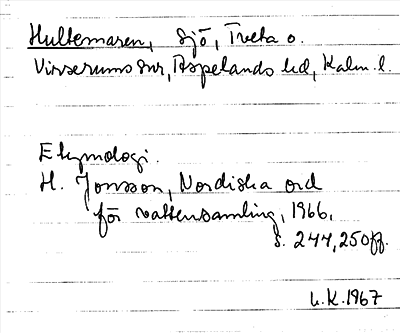 Hultemaren, sjö, Tveta o.
Virserums snr, Aspelands hd, Kalm. l.
Etymologi.
H. Jonsson, Nordiska ord
för vattensamling, 1966,
s. 244, 250ff.
L.K. 1967